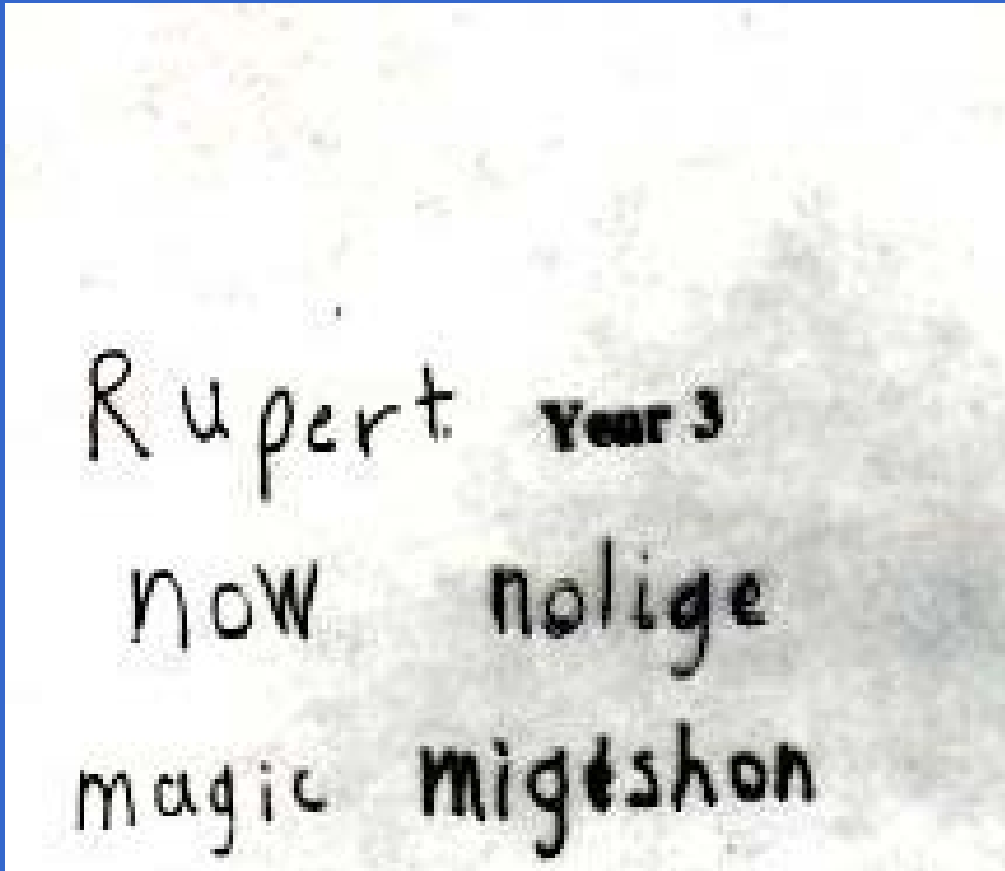 Rupert Year 3
now nolige
magic migeshon